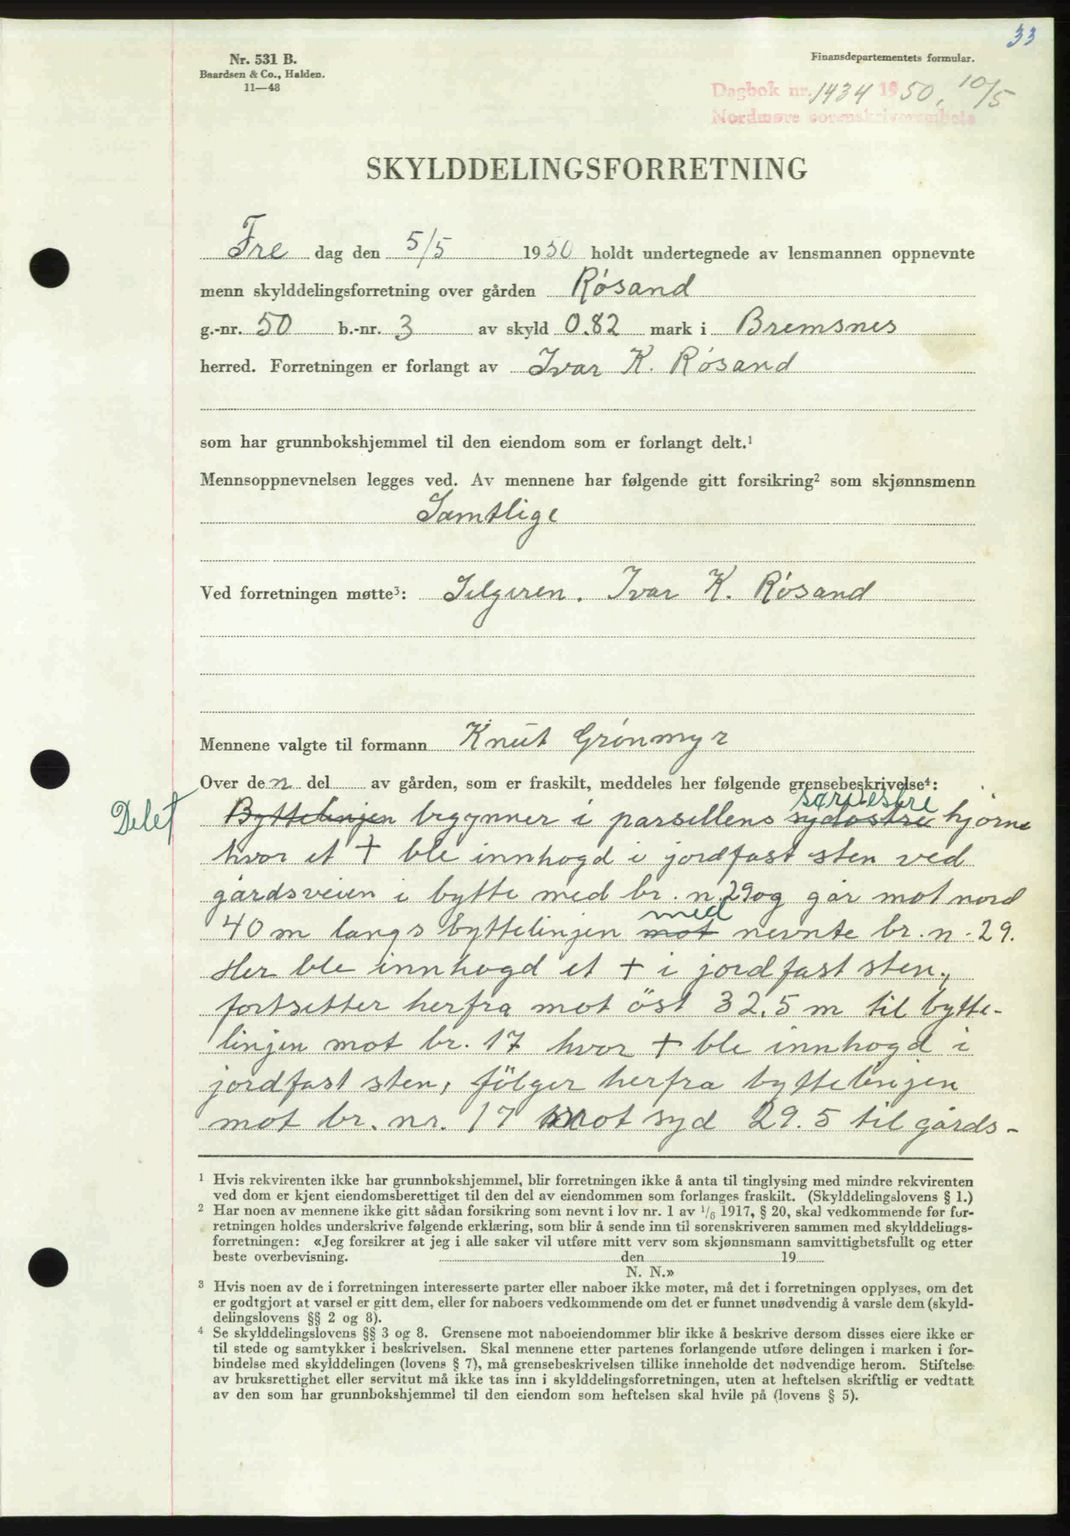 33
Nr. 531 B.
Baardsen & Co., Halden.
11—48
Finansdepartementets formular.
Dagbok nr. 1434 1950, 10/5
Nordmøre sorenskriverembete
SKYLDDELINGSFORRETNING
Fre dag den 5/5 1950 holdt undertegnede av lensmannen oppnevnte
menn skylddelingsforretning over gården Røsand
g.-nr. 50 b.-nr. 3 av skyld 0.82 mark i Bremsnes
herred. Forretningen er forlangt av Ivar K. Røsand
som har grunnbokshjemmel til den eiendom som er forlangt delt.¹
Mennsoppnevnelsen legges ved. Av mennene har følgende gitt forsikring² som skjønnsmenn
Samtlige
Ved forretningen møtte³: Selgeren. Ivar K. Røsand
Mennene valgte til formann Knut Grønmyr
Over den del av gården, som er fraskilt, meddeles her følgende grensebeskrivelse⁴:
sørvestre
Delet Byttelinjen begynner i parsellens sydøstre hjørne
hvor et + ble innhogd i jordfast sten ved
gårdsveien i bytte med br. n 29 og går mot nord
med
40 m langs byttelinjen mot nevnte br. n. 29.
Her ble innhogd et + i jordfast sten,
fortsetter herfra mot öst 32,5 m til bytte-
linjen mot br. 17 hvor + ble innhogd i
jordfast sten, fölger herfra byttelinjen
mot br. nr. 17 mot syd 29.5 til gårds-
¹ Hvis rekvirenten ikke har grunnbokshjemmel, blir forretningen ikke å anta til tinglysing med mindre rekvirenten
ved dom er kjent eiendomsberettiget til den del av eiendommen som forlanges fraskilt. (Skylddelingslovens § 1.)
² Har noen av mennene ikke gitt sådan forsikring som nevnt i lov nr. 1 av ¹/₆ 1917, § 20, skal vedkommende før for-
retningen holdes underskrive følgende erklæring, som blir å sende inn til sorenskriveren sammen med skylddelings-
forretningen: «Jeg forsikrer at jeg i alle saker vil utføre mitt verv som skjønnsmann samvittighetsfullt og etter
beste overbevisning. den 19
N. N.»
³ Hvis noen av de i forretningen interesserte parter eller naboer ikke møter, må det i forretningen opplyses, om det
er godtgjort at varsel er gitt dem, eller for naboers vedkommende om det er funnet unødvendig å varsle dem (skyld-
delingslovens §§ 2 og 8).
⁴ Se skylddelingslovens §§ 3 og 8. Grensene mot naboeiendommer blir ikke å beskrive dersom disses eiere ikke er
til stede og samtykker i beskrivelsen. Skal mennene etter partenes forlangende utføre delingen i marken i for-
bindelse med skylddelingen (lovens § 7), må grensebeskrivelsen tillike inneholde det nødvendige herom. Stiftelse
av bruksrettighet eller servitut må ikke tas inn i skylddelingsforretningen, uten at heftelsen skriftlig er vedtatt
av den som har grunnbokshjemmel til den eiendom som heftelsen skal hvile på (lovens § 5).